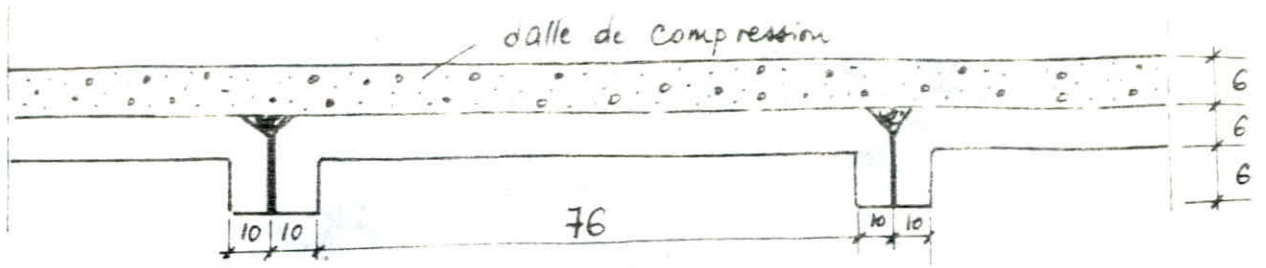 dalle de compression
6
6
6
10 10 76 10 10